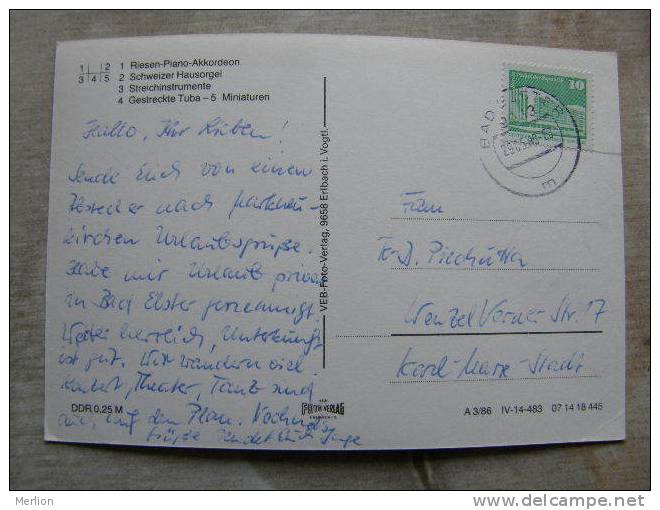 1 2 1 Riesen-Piano-Akkordeon
3 4 5 2 Schweizer Hausorgel
3 Streichinstrumente
4 Gestreckte Tuba – 5 Miniaturen
Hallo, Ihr Lieben!
Sende Euch von einem
Abstecher nach Markneu-
kirchen Urlaubsgrüße.
Habe mir Urlaub privat
in Bad Elster genehmigt.
Wetter herrlich, Unterkunft
ist gut. Wir wandern viel
Konzert, Theater, Tanz sind
auf dem Plan. Nochmals
Grüße sendet Euch Inge
DDR 0,25 M
VEB-Foto-Verlag, 9658 Erlbach i. Vogtl.
VEB
FOTO VERLAG
ERLBACH
10
BAD ELSTER
m
Frau
K.-D.
Wenzel Verner Str. 17
Karl-Marx-Stadt
A 3/86 IV-14-483 07 14 18 445
Merlion
www.delcampe.net